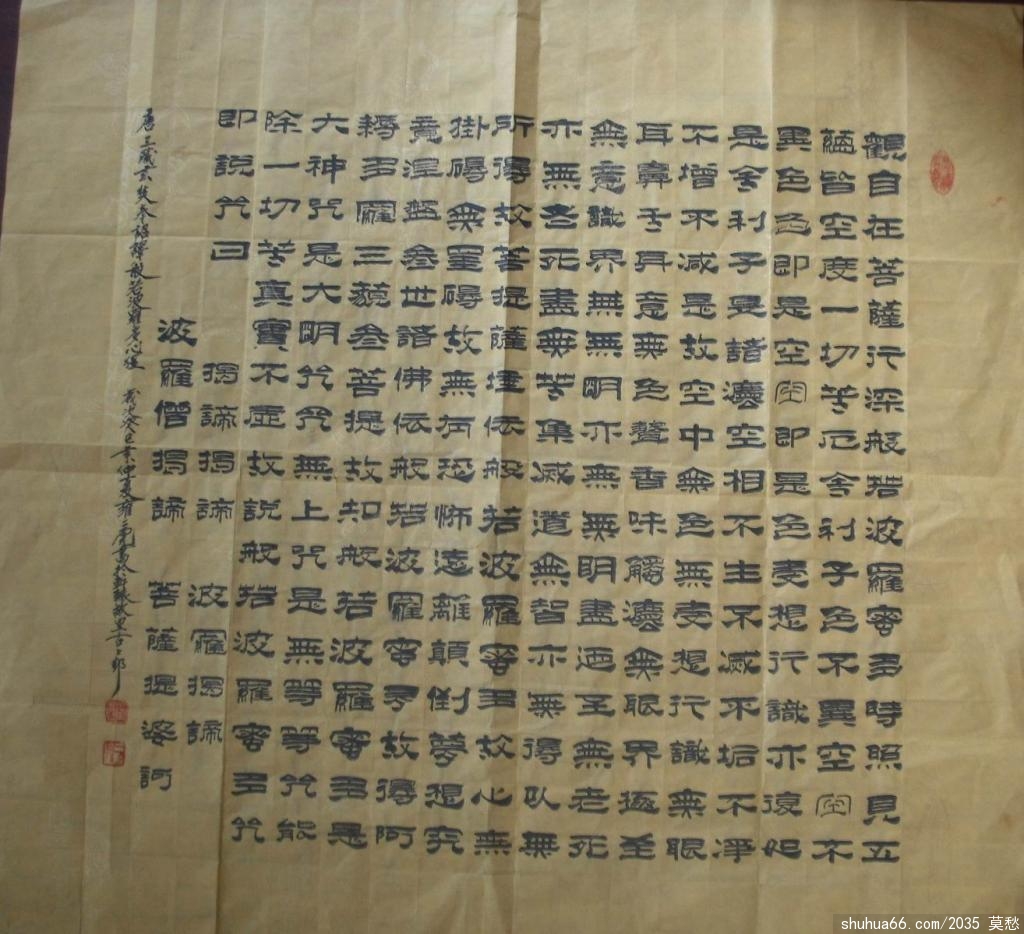 觀自在菩薩行深般若波羅蜜多時照見五
蘊皆空度一切苦厄舍利子色不異空空不
異色色即是空空即是色受想行識亦復如
是舍利子是諸灋空相不生不滅不垢不淨
不增不減是故空中無色無受想行識無眼
耳鼻舌耳意無色聲香味觸灋無眼界逎至
無意識界無無明亦無無明盡逎至無老死
亦無老死盡無苦集滅道無智亦無得以無
所得故菩提薩埵依般若波羅蜜多故心無
掛礙無罣礙故無有恐怖遠離顛倒夢想究
竟涅盤叁世諸佛依般若波羅蜜多故得阿
耨多羅三藐叁菩提故知般若波羅蜜多是
大神咒是大明咒咒無上咒是無等等咒能
除一切苦真實不虛故說般若波羅蜜多咒
即說咒曰
揭諦揭諦 波羅揭諦
波羅僧揭諦 菩薩提婆訶
唐三藏玄奘奉詔譯般若波羅蜜多心經 歲次癸巳 仲夏
shuhua66.com/2035 莫愁